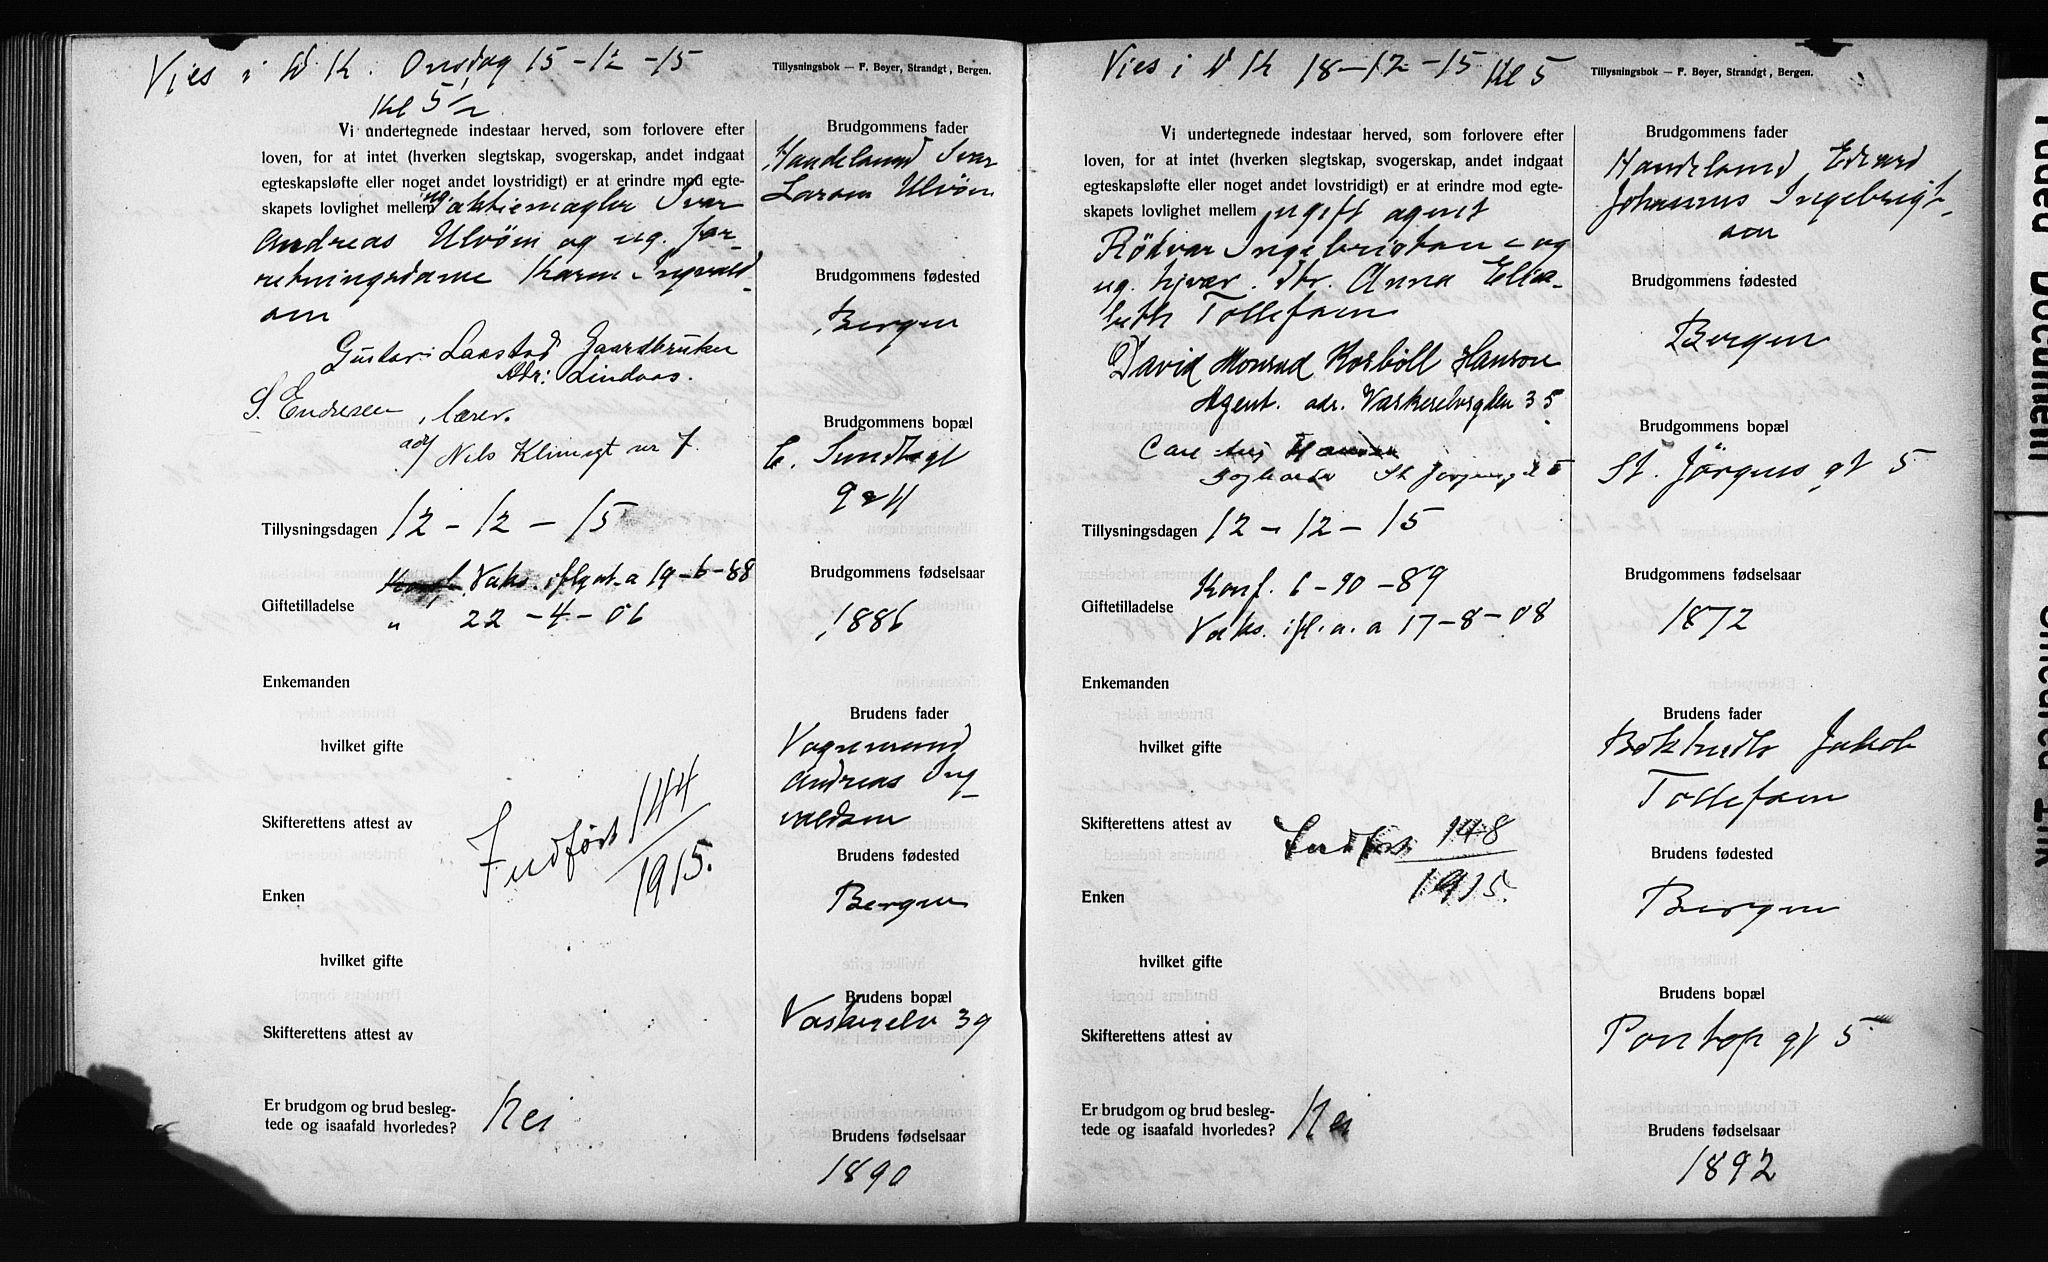 Vies i D K. Onsdag 15-12-15
Kl 5 1/2
Tillysningsbok — F. Beyer, Strandgt, Bergen.
Vi undertegnede indestaar herved, som forlovere efter
loven, for at intet (hverken slegtskap, svogerskap, andet indgaat
egteskapsløfte eller noget andet lovstridigt) er at erindre mod egte-
skapets lovlighet mellem ug. aktiemægler Ivar
Andreas Ulvøen og ug. for-
retningsdame Karen Ingvald-
sen
Gustav Laastad Gaardbruker
Adr: Lindaas.
S. Endresen, lærer.
adr Nils Klimsgt nr 7
Tillysningsdagen 12-12-15
Vaks. ifl. at. a 19-6-88
Giftetilladelse " 22-4-06
Enkemanden
hvilket gifte
Skifterettens attest av
Indført 144/1915.
Enken
hvilket gifte
Skifterettens attest av
Er brudgom og brud besleg-
tede og isaafald hvorledes? Nei
Brudgommens fader
Handelsmand Ivar
Larsen Ulvøen
Brudgommens fødested
Bergen
Brudgommens bopæl
C. Sundtsgt
Brudgommens fødselsaar
1886
Brudens fader
Vognmand
Andreas Ing-
valdsen
Brudens fødested
Bergen
Brudens bopæl
Vaskerelv 39
Brudens fødselsaar
1890
Vies i D K 18-12-15 Kl 5
Tillysningsbok — F. Beyer, Strandgt, Bergen.
Vi undertegnede indestaar herved, som forlovere efter
loven, for at intet (hverken slegtskap, svogerskap, andet indgaat
egteskapsløfte eller noget andet lovstridigt) er at erindre mod egte-
skapets lovlighet mellem ugift agent
Rötvar Ingebrigtsen og
ug. hjvær. Anna Elisa-
beth Tollefsen
David Monrad Kosböll Hanson
Agent. adr. Vaskerelvsgden 35
St Jörgensg 5
Tillysningsdagen 12-12-15
Konf. 6-10-89
Giftetilladelse
Vaks. ifl. a. a 17-8-08
Enkemanden
hvilket gifte
Skifterettens attest av
Indført 148/1915.
Enken
hvilket gifte
Skifterettens attest av
Er brudgom og brud besleg-
tede og isaafald hvorledes? Nei
Brudgommens fader
Handelsmand Edvard
Johannes Ingebrigt-
sen
Brudgommens fødested
Bergen
Brudgommens bopæl
St. Jörgens gt 5
Brudgommens fødselsaar
1872
Brudens fader
Jakob
Tollefsen
Brudens fødested
Bergen
Brudens bopæl
Pontop gt 5
Brudens fødselsaar
1892